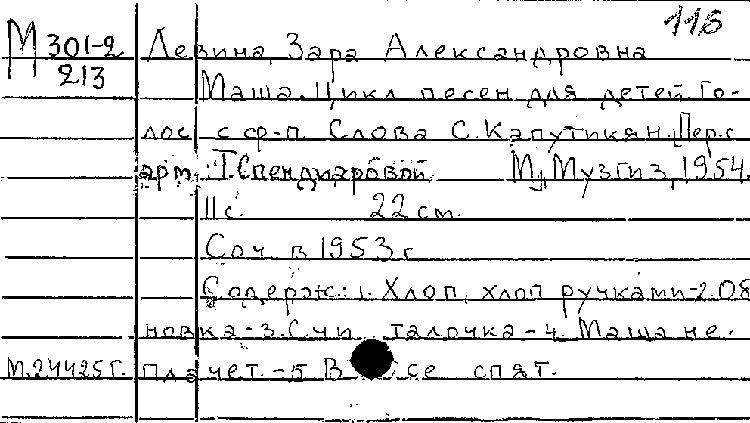 116
М 301-2 Левина, Зара Александровна
213
Маша. Цикл песен для детей. Го-
лос с ф-п. Слова С. Капутикян. Пер. с
арм. Т. Спендиаровой М., Музгиз, 1954.
11 с. 22 см.
Соч. в 1953 г.
Содерж.: 1. Хлоп, хлоп ручками-2. Об
новка-3. Счи талочка-4. Маша не
М.24425 г. пла чет.-5 В се спят.